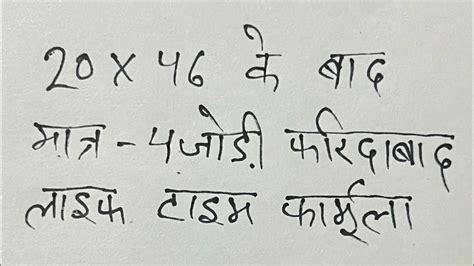 20 x 46 के बाद
मात्र - 4 जोड़ी फरिदाबाद
लाइफ टाइम फार्मूला